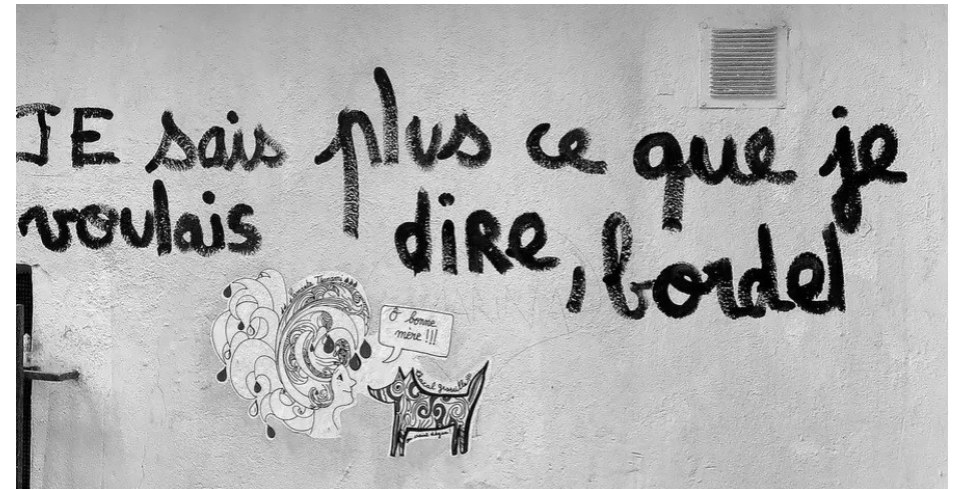 JE sais plus ce que je
voulais dire, bordel
Ô bonne
mère !!!